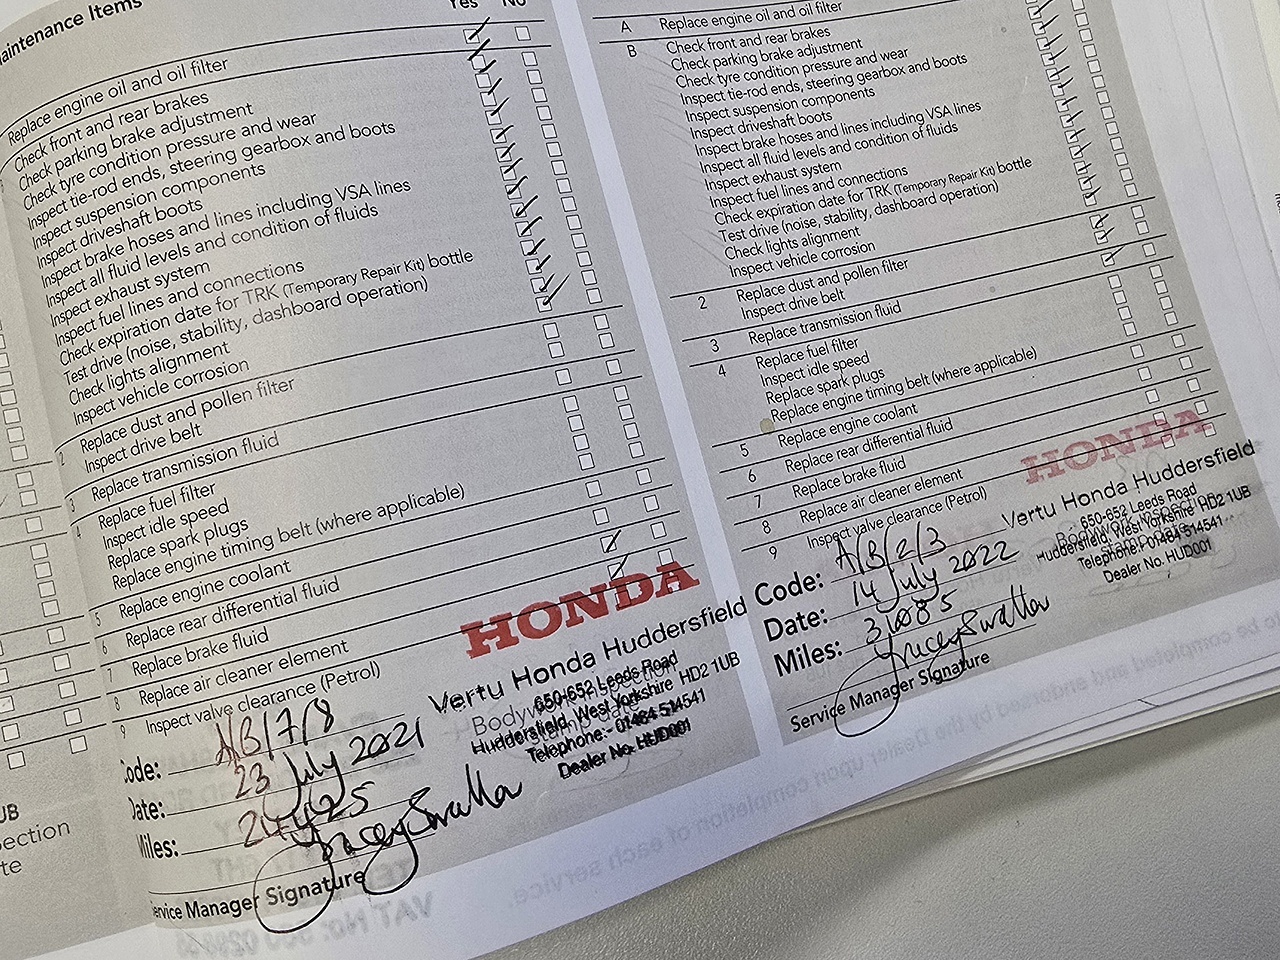 Maintenance Items
Yes No
Replace engine oil and oil filter
Check front and rear brakes
Check parking brake adjustment
Check tyre condition pressure and wear
Inspect tie-rod ends, steering gearbox and boots
Inspect suspension components
Inspect driveshaft boots
Inspect brake hoses and lines including VSA lines
Inspect all fluid levels and condition of fluids
Inspect exhaust system
Inspect fuel lines and connections
Check expiration date for TRK (Temporary Repair Kit) bottle
Test drive (noise, stability, dashboard operation)
Check lights alignment
Inspect vehicle corrosion
2 Replace dust and pollen filter
Inspect drive belt
3 Replace transmission fluid
4 Replace fuel filter
Inspect idle speed
Replace spark plugs
Replace engine timing belt (where applicable)
5 Replace engine coolant
6 Replace rear differential fluid
7 Replace brake fluid
8 Replace air cleaner element
9 Inspect valve clearance (Petrol)
HONDA
Vertu Honda Huddersfield
650-652 Leeds Road
Huddersfield, West Yorkshire HD2 1UB
Telephone:- 01484 514541
Dealer No. HUD001
Code: A/B/7/8
Date: 23 July 2021
Miles:
Service Manager Signature
A Replace engine oil and oil filter
B Check front and rear brakes
Check parking brake adjustment
Check tyre condition pressure and wear
Inspect tie-rod ends, steering gearbox and boots
Inspect suspension components
Inspect driveshaft boots
Inspect brake hoses and lines including VSA lines
Inspect all fluid levels and condition of fluids
Inspect exhaust system
Inspect fuel lines and connections
Check expiration date for TRK (Temporary Repair Kit) bottle
Test drive (noise, stability, dashboard operation)
Check lights alignment
Inspect vehicle corrosion
2 Replace dust and pollen filter
Inspect drive belt
3 Replace transmission fluid
4 Replace fuel filter
Inspect idle speed
Replace spark plugs
Replace engine timing belt (where applicable)
5 Replace engine coolant
6 Replace rear differential fluid
7 Replace brake fluid
8 Replace air cleaner element
9 Inspect valve clearance (Petrol)
HONDA
Vertu Honda Huddersfield
650-652 Leeds Road
Huddersfield, West Yorkshire HD2 1UB
Telephone:- 01484 514541
Dealer No. HUD001
Code: A/B/2/3
Date: 14 July 2022
Miles: 31085
Tracey Swallow
Service Manager Signature